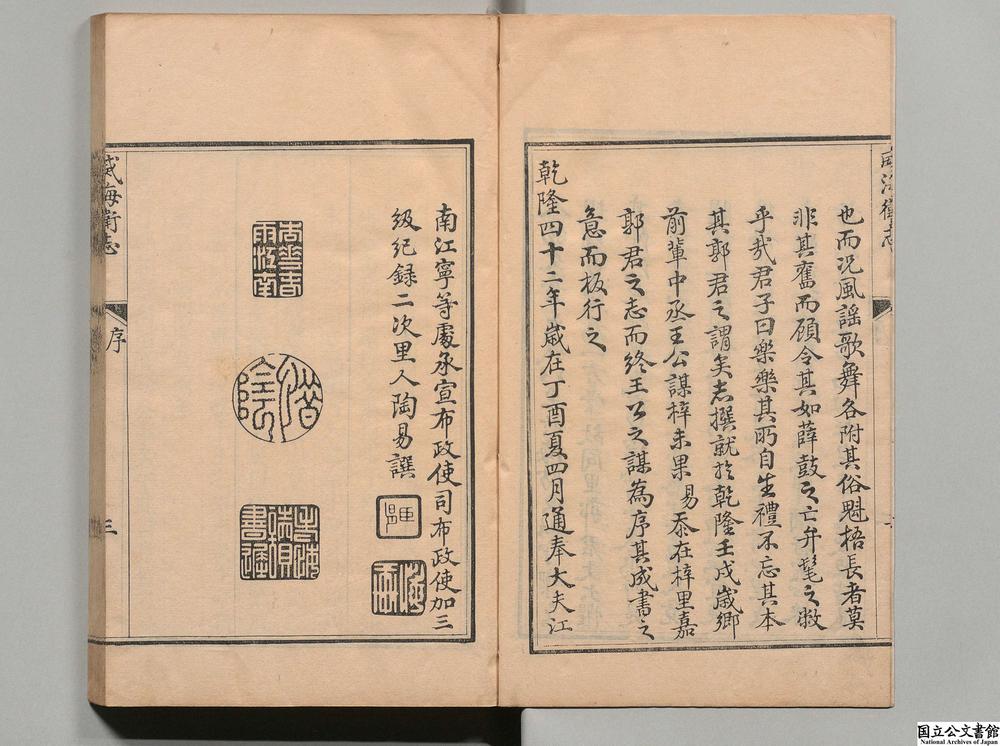 也而况風謡歌舞各附其俗魁梧長者莫
非其舊而顧令其如薛鼓之亡弁髦之敝
乎哉君子曰樂樂其所自生禮不忘其本
其郭君之謂矣志撰就於乾隆壬戌歲鄉
前輩中丞王公謀梓未果易忝在梓里嘉
郭君之志而終王公之謀為序其成書之
意而板行之
乾隆四十二年歲在丁酉夏四月通奉大夫江
南江寧等處承宣布政使司布政使加三
級紀録二次里人陶易譔
威海衛志
序
三
国立公文書館
National Archives of Japan